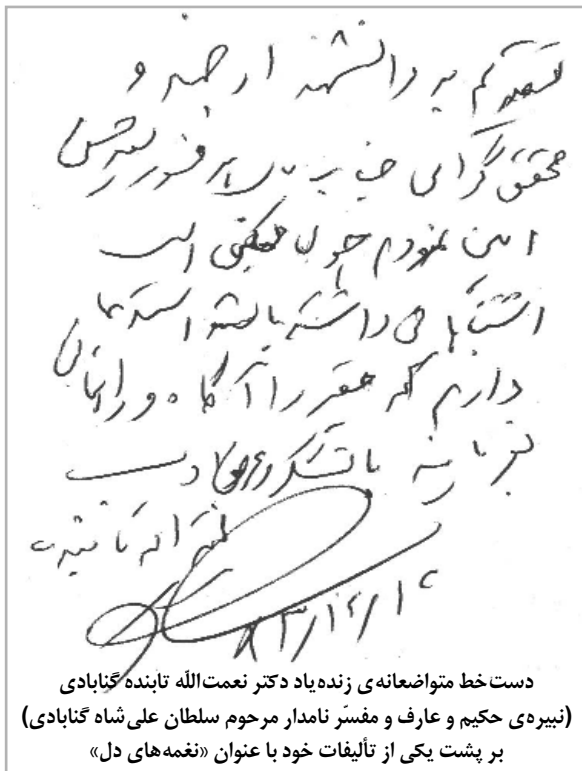 تقدیم به دانشمند ارجمند و
محقق گرامی جناب پرفسور سید حسن
امین نمودم چون ممکن است
اشتباهاتی داشته باشد استدعا
دارم که حقیر را آگاه و راهنمایی
فرمایند با تشکر و عرض ادب
نعمت اله تابنده
دست‌خط متواضعانه‌ی زنده‌یاد دکتر نعمت‌اللّه تابنده گنابادی
(نبیره‌ی حکیم و عارف و مفسّر نامدار مرحوم سلطان علی‌شاه گنابادی)
بر پشت یکی از تألیفات خود با عنوان «نغمه‌های دل»